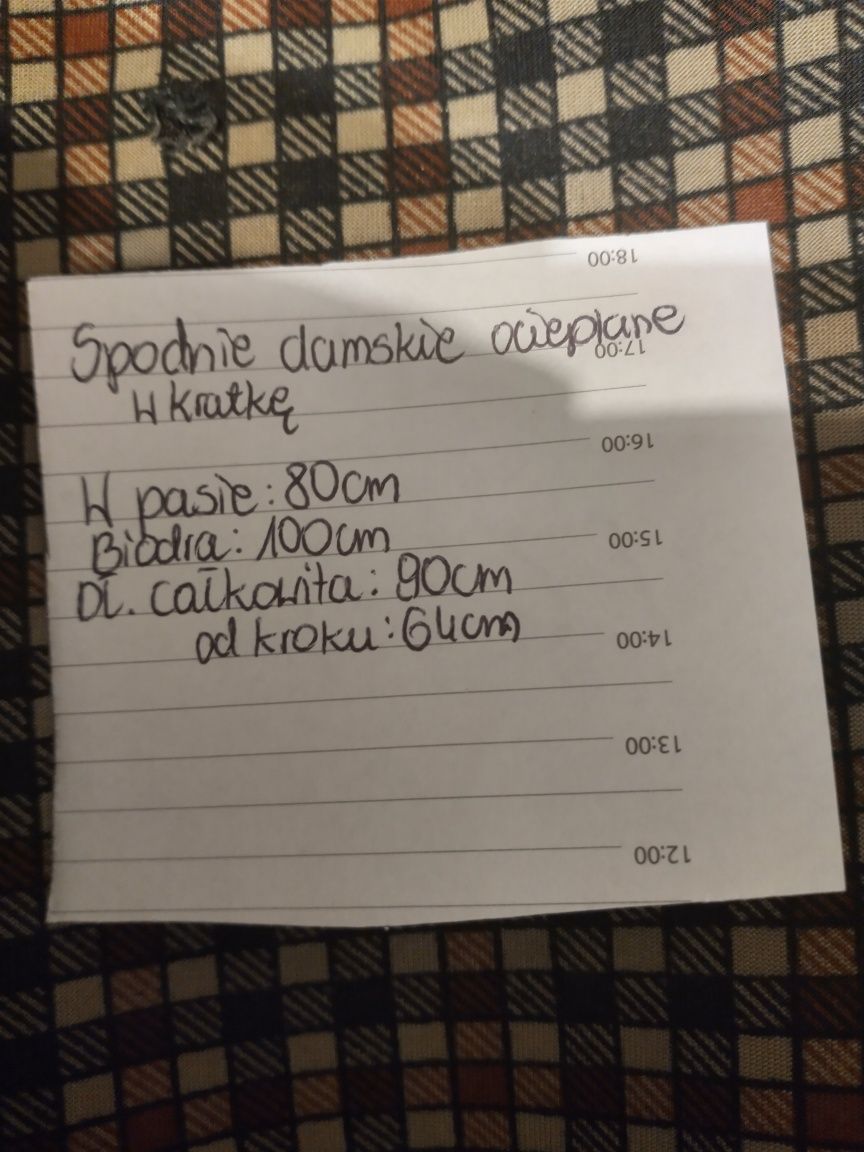 Spodnie damskie ocieplane
W kratkę
W pasie: 80cm
Biodra: 100cm
Dł. całkowita: 90cm
od kroku: 64cm
18:00
17:00
16:00
15:00
14:00
13:00
12:00